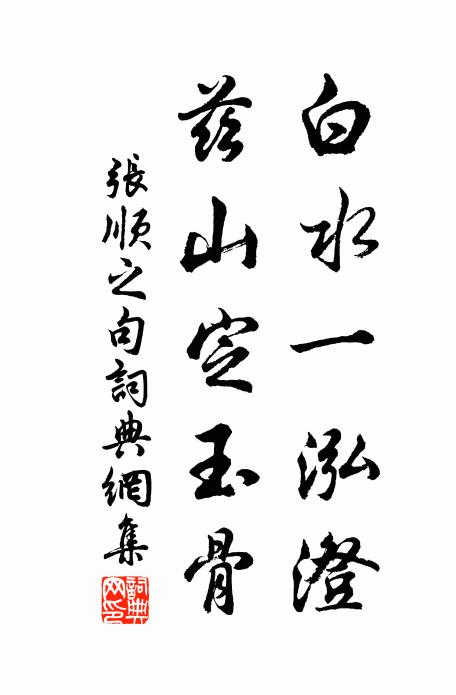 白水一泓澄
茲山定玉骨
張順之句詞典網集
詞典網印